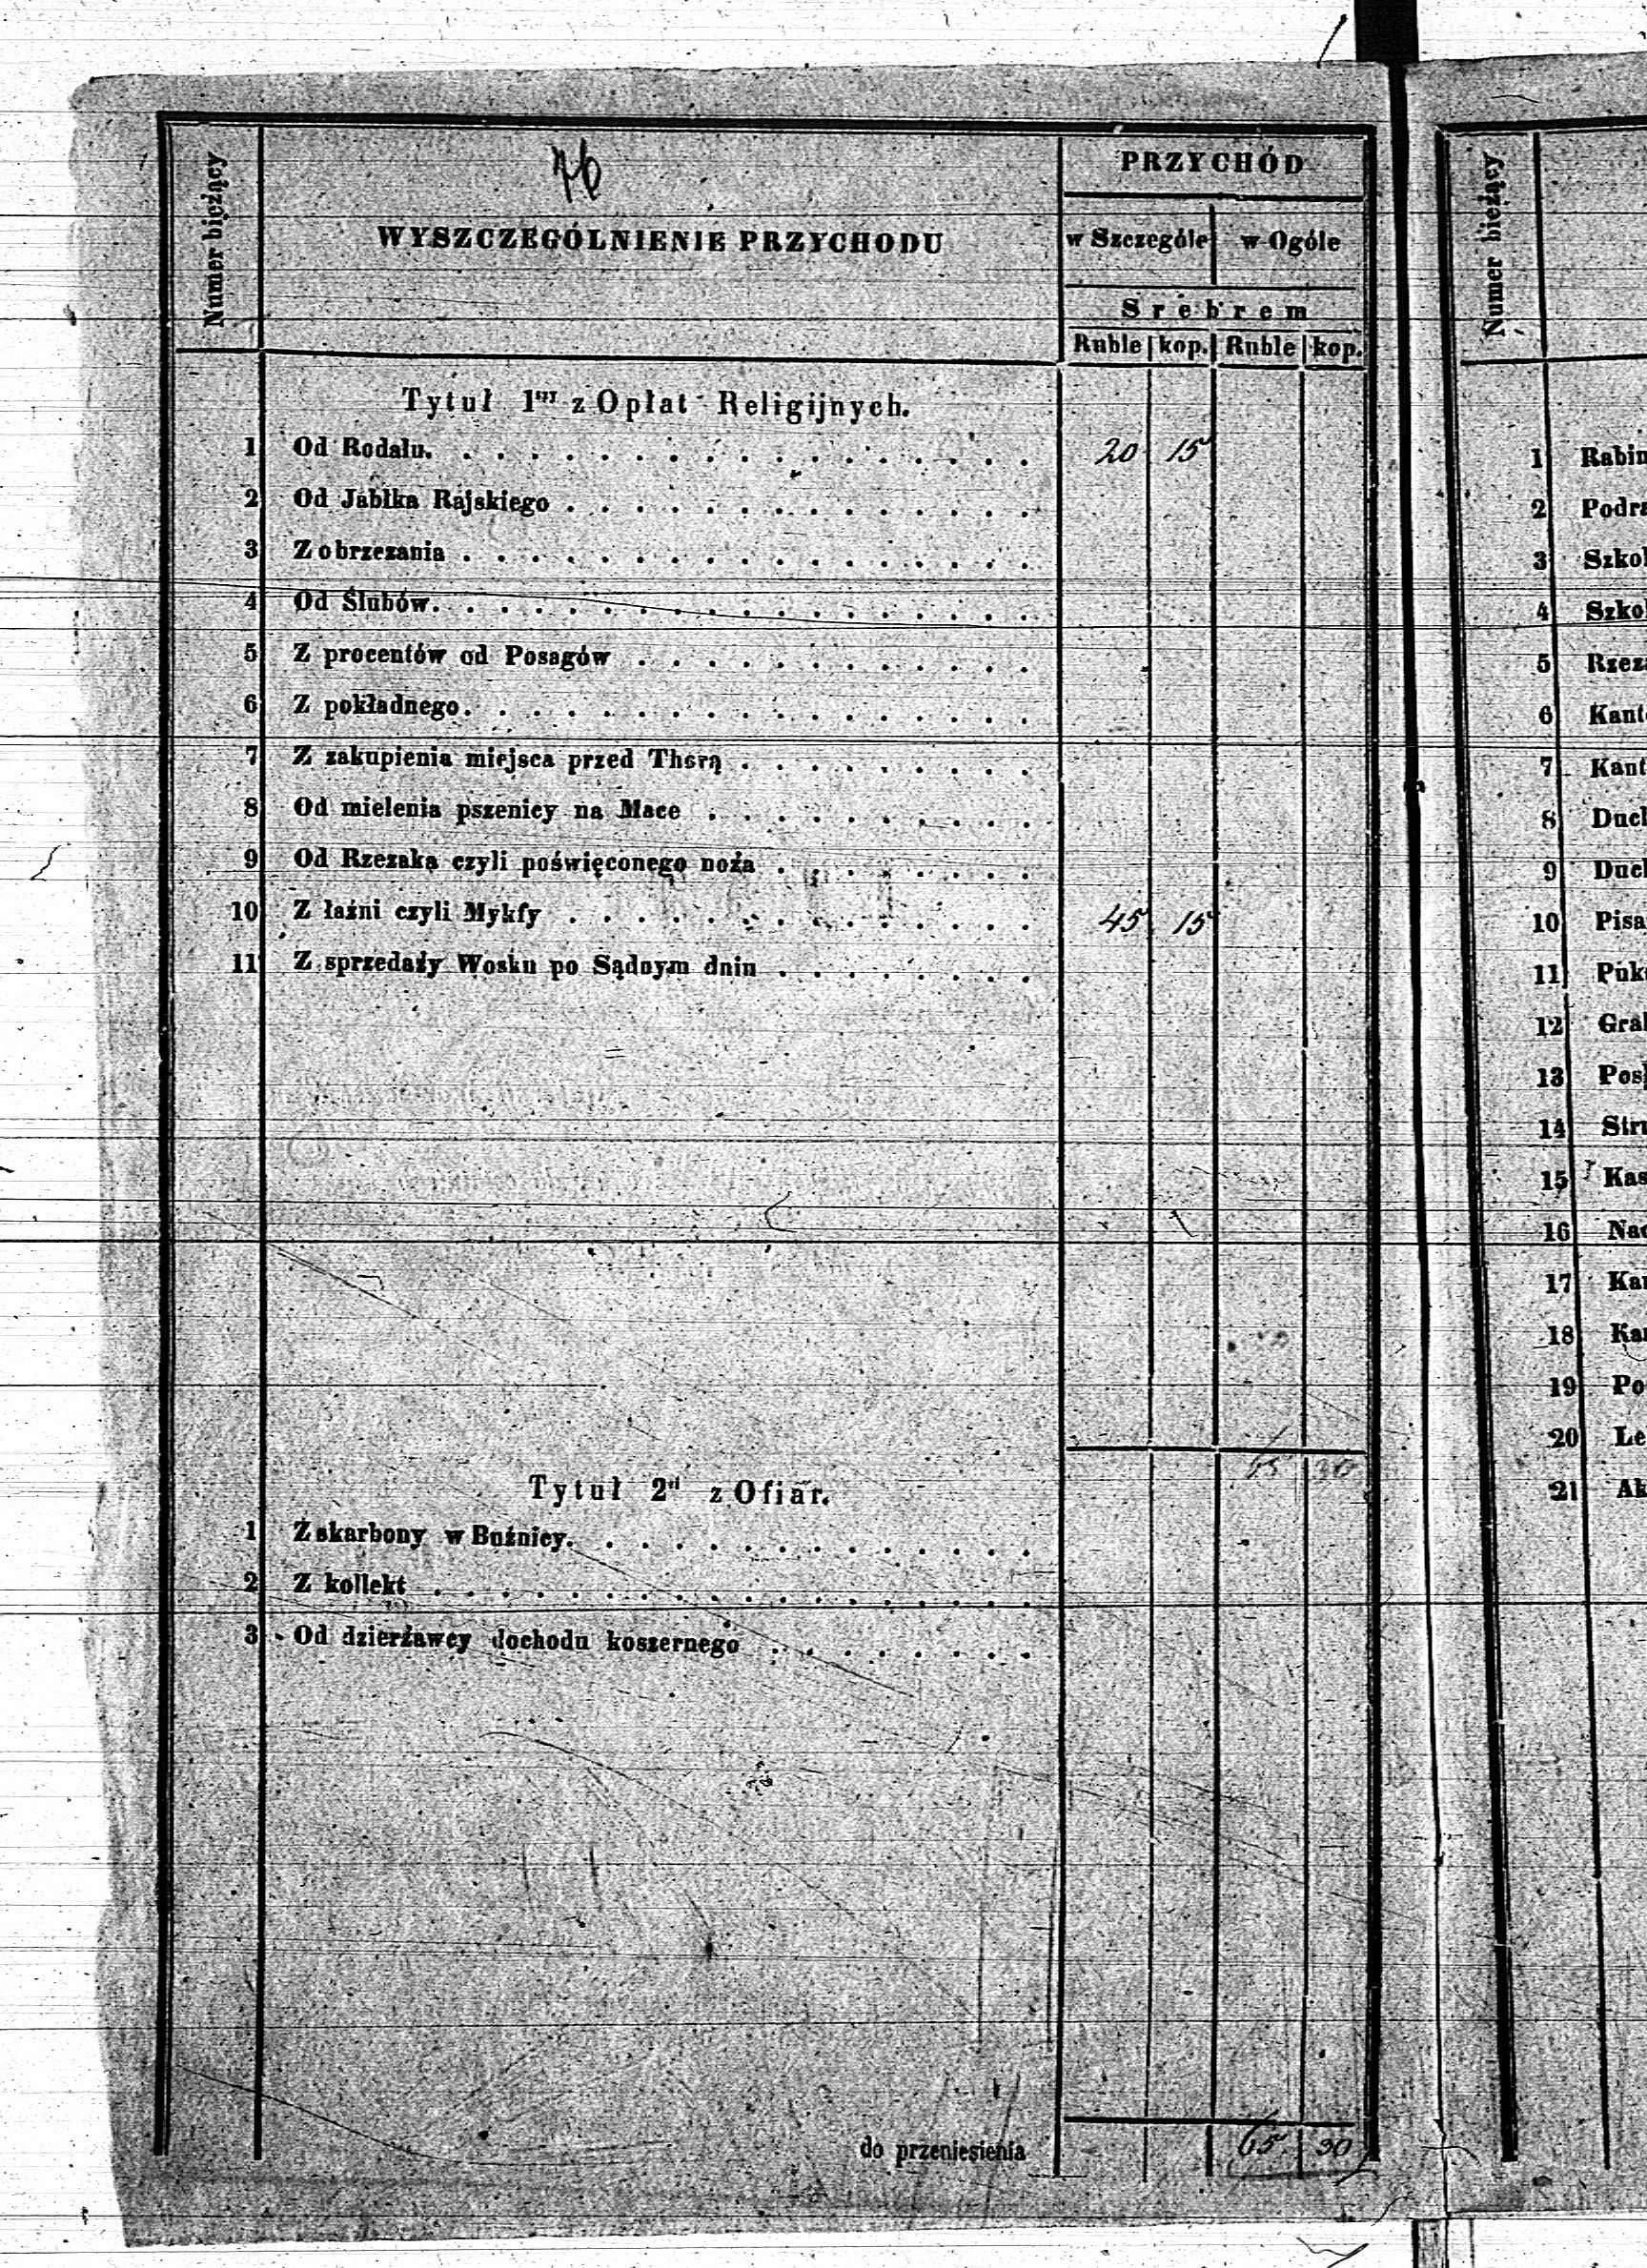 76
Numer bieżący
WYSZCZEGÓLNIENIE PRZYCHODU
PRZYCHÓD
w Szczególe w Ogóle
Srebrem
Ruble kop. Ruble kop.
Tytuł 1szy z Opłat Religijnych.
1 Od Rodału. 20 15
2 Od Jabłka Rajskiego
3 Z obrzezania
4 Od Ślubów.
5 Z procentów od Posagów
6 Z pokładnego.
7 Z zakupienia miejsca przed Thorą
8 Od mielenia pszenicy na Mace
9 Od Rzezaka czyli poświęconego noża
10 Z łaźni czyli Mykfy 45 15
11 Z sprzedaży Wosku po Sądnym dniu
65 30
Tytuł 2gi z Ofiar.
1 Z skarbony w Buźnicy.
2 Z kollekt
3 Od dzierżawcy dochodu koszernego
do przeniesienia 65. 30
Numer bieżący
1 Rabin
2 Podr
3 Szkol
4 Szko
5 Rzez
6 Kant
7 Kant
8 Duch
9 Duch
10 Pisa
11 Puk
12 Gra
13 Pos
14 Str
15 Kas
16 Na
17 Ka
18 Ka
19 Po
20 Le
21 Ak